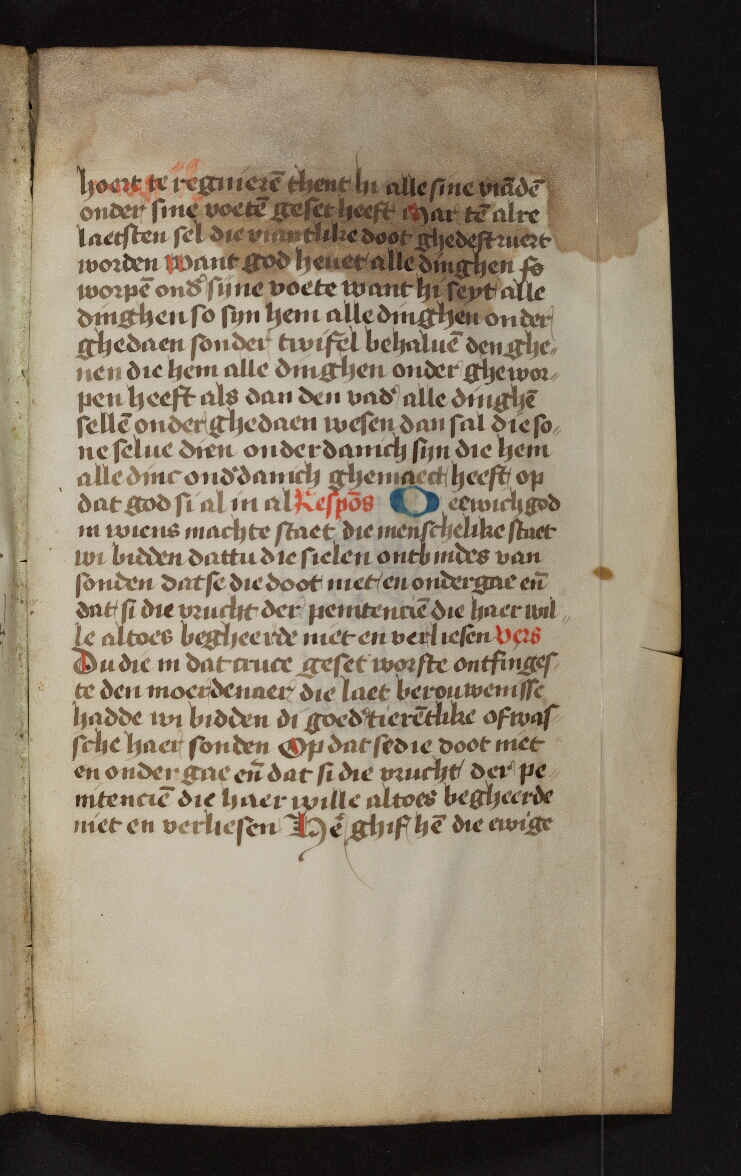 hoert te regnierē thent hi alle sine viādē
onder sine voetē geset heeft Mar tē alre
laetsten sel die viantlike doot ghedestruert
worden want god hevet alle dinghen
worpē ond' sijne voete want hi seyt alle
dinghen so syn hem alle dinghen onder
ghedaen sonder twifel behaluē den ghe-
nen die hem alle dinghen onder ghewor-
pen heeft als dan den vad' alle dinghē
sellē onder ghedaen wesen dan sal die so-
ne selue dien onderdanich syn die hem
alle dinc ond'danich ghemaect heeft op
dat god si al in al Respōs O eewich god
in wiens machte staet die menschelike staet
wi bidden dattu die sielen ontbindes van
sonden datse die doot niet en ondergae eñ
dat si die vrucht der penitenciē die haer wil-
le altoes begheerde niet en verliesen Vers
Du die in dat cruce geset worste ontfinges-
te den moerdenaer die laet berouwenisse
hadde wi bidden di goed'tierētlike of was-
sche haer sonden Op dat se die doot niet
en onder gae eñ dat si die vrucht der pe-
nitenciē die haer wille altoes begheerde
niet en verliesen Hē ghif hē die ewige